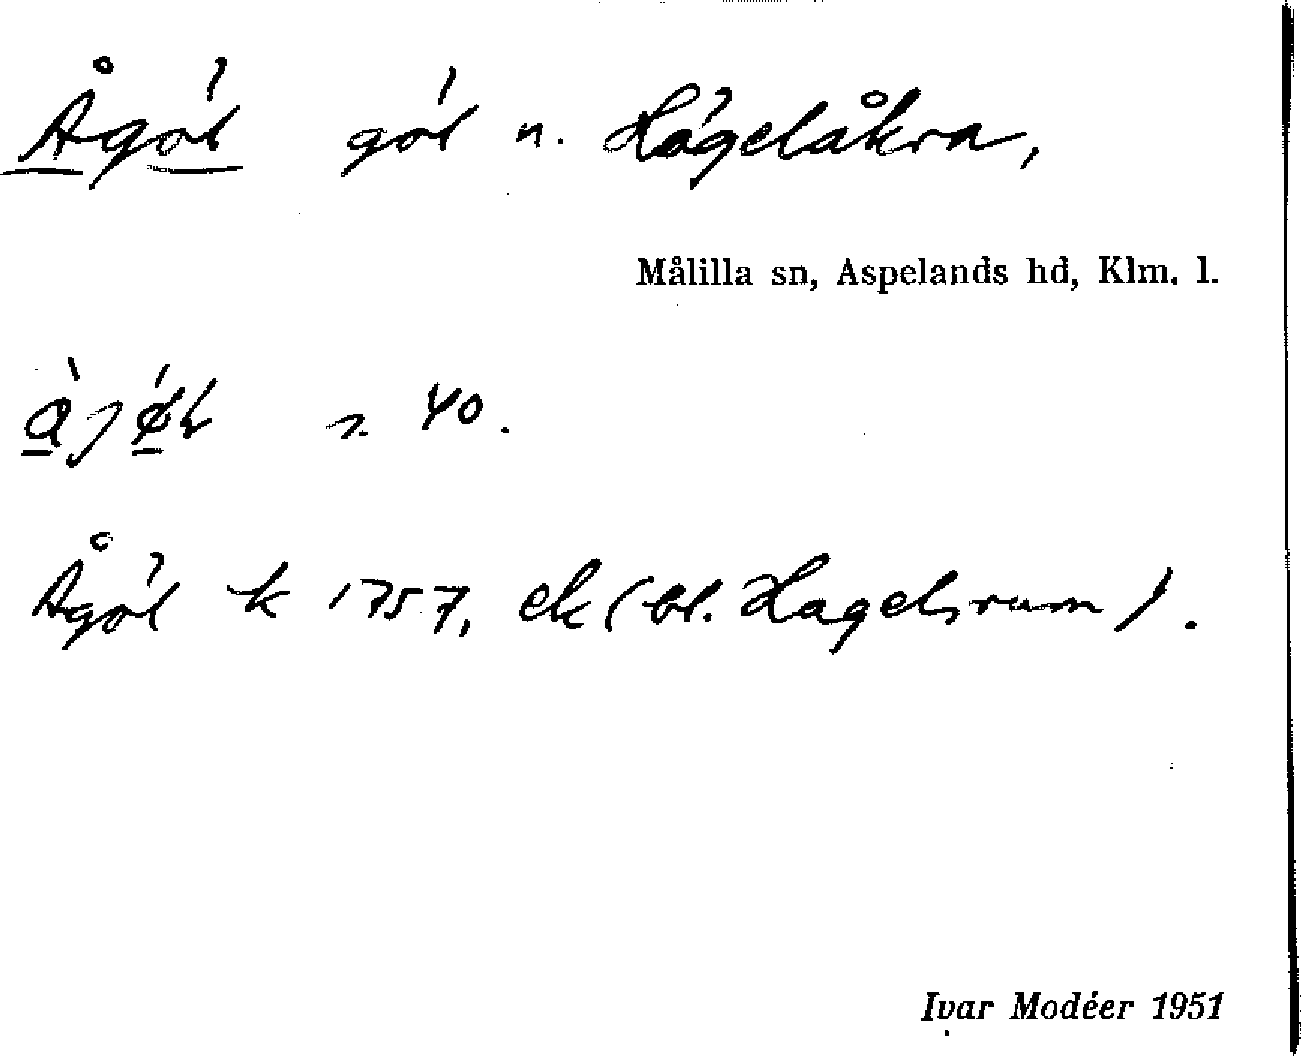 Ågól gól n. Hágelåkra,
Målilla sn, Aspelands hd, Klm. l.
40.
Ågól k 1757, ek (bl. Hagelsrum).
Ivar Modéer 1951